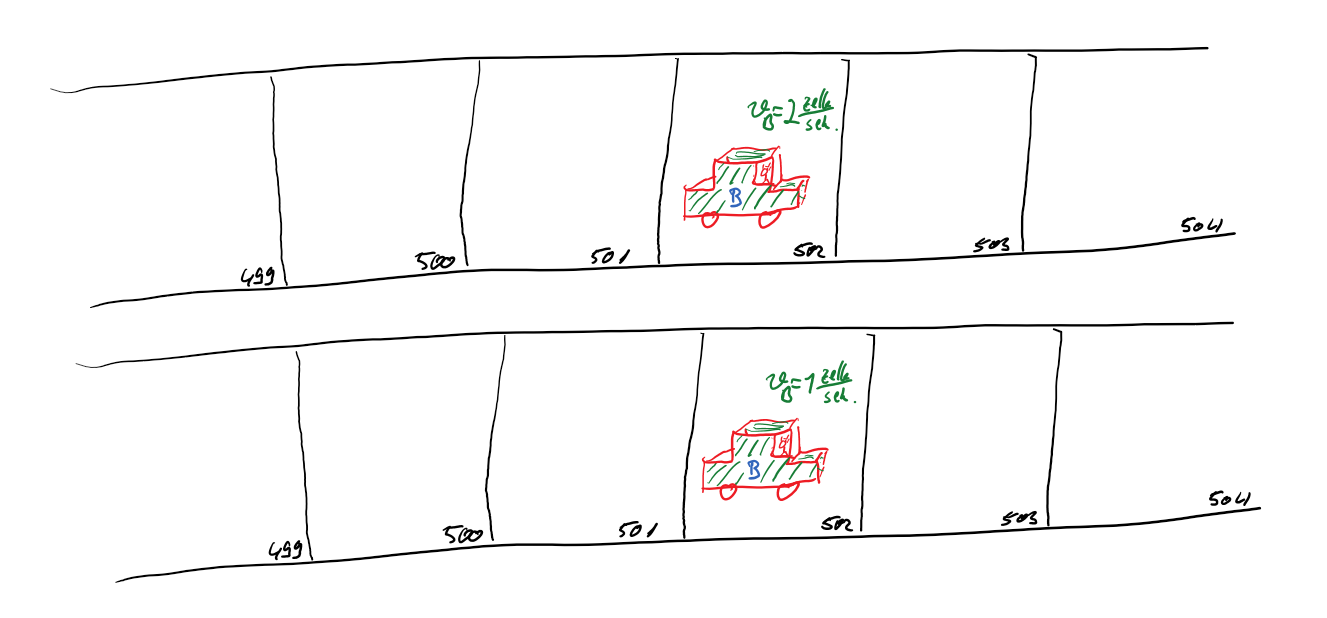 v_B = 2 Zelle/sek.
B
499 500 501 502 503 504
v_B = 1 Zelle/sek.
B
499 500 501 502 503 504